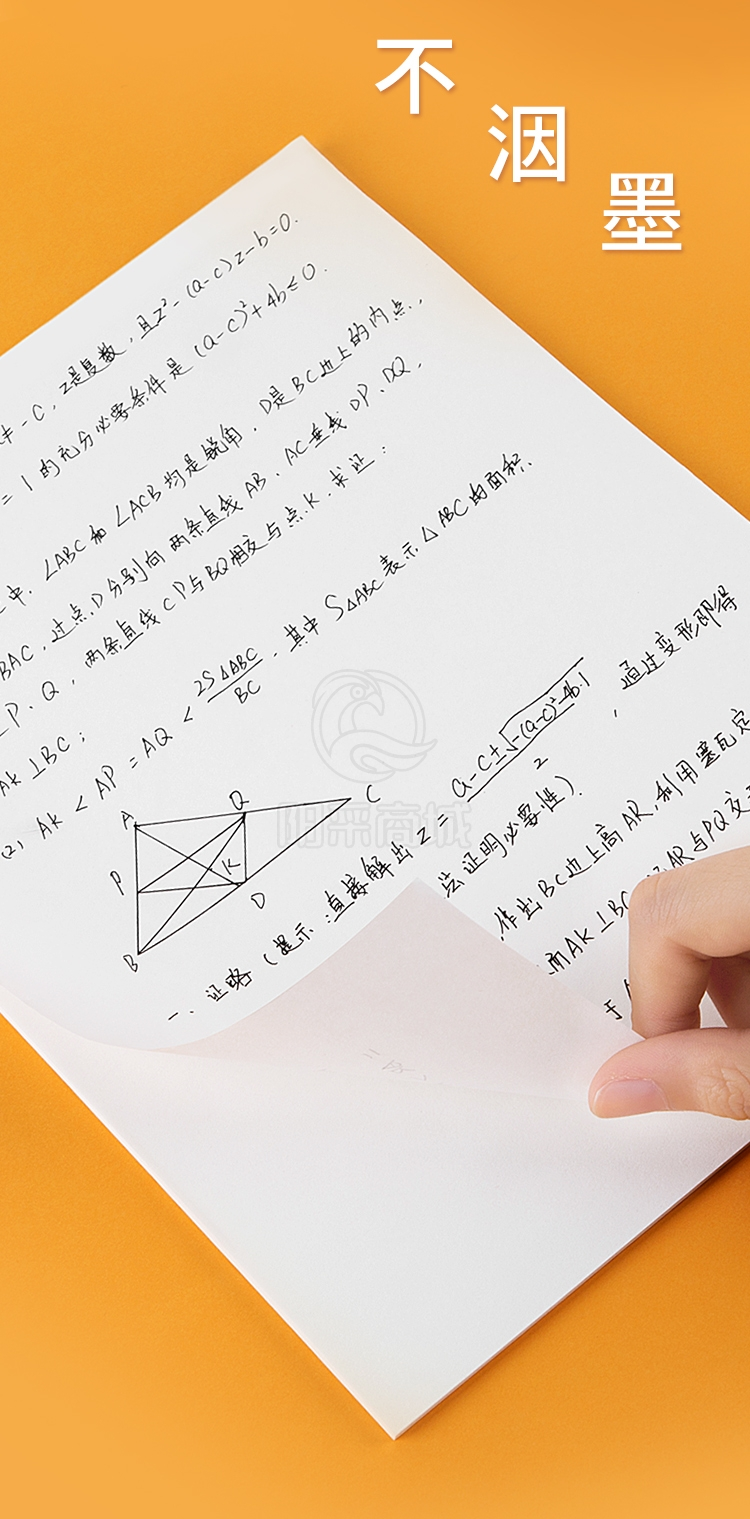 不
洇
墨
≠-C，z是复数，且z²-(a-c)z-b=0.
=1的充分必要条件是(a-c)²+4b≤0.
中，∠ABC和∠ACB均是锐角，D是BC边上的内点，
BAC，过点D分别向两条直线AB、AC垂线DP、DQ，
P、Q，两条直线CP与BQ相交与点K.求证：
AK⊥BC；
(2) AK < AP = AQ < 2S△ABC/BC，其中S△ABC表示△ABC的面积.
A
Q
C
P
K
D
B
阳采商城
一、证略(提示：直接解出z = a-c±√-(a-c)²-4b·i/2，通过变形即得
法证明必要性).
，作出BC边上高AR，利用塞瓦定
而AK⊥BC
AR与PQ交
于